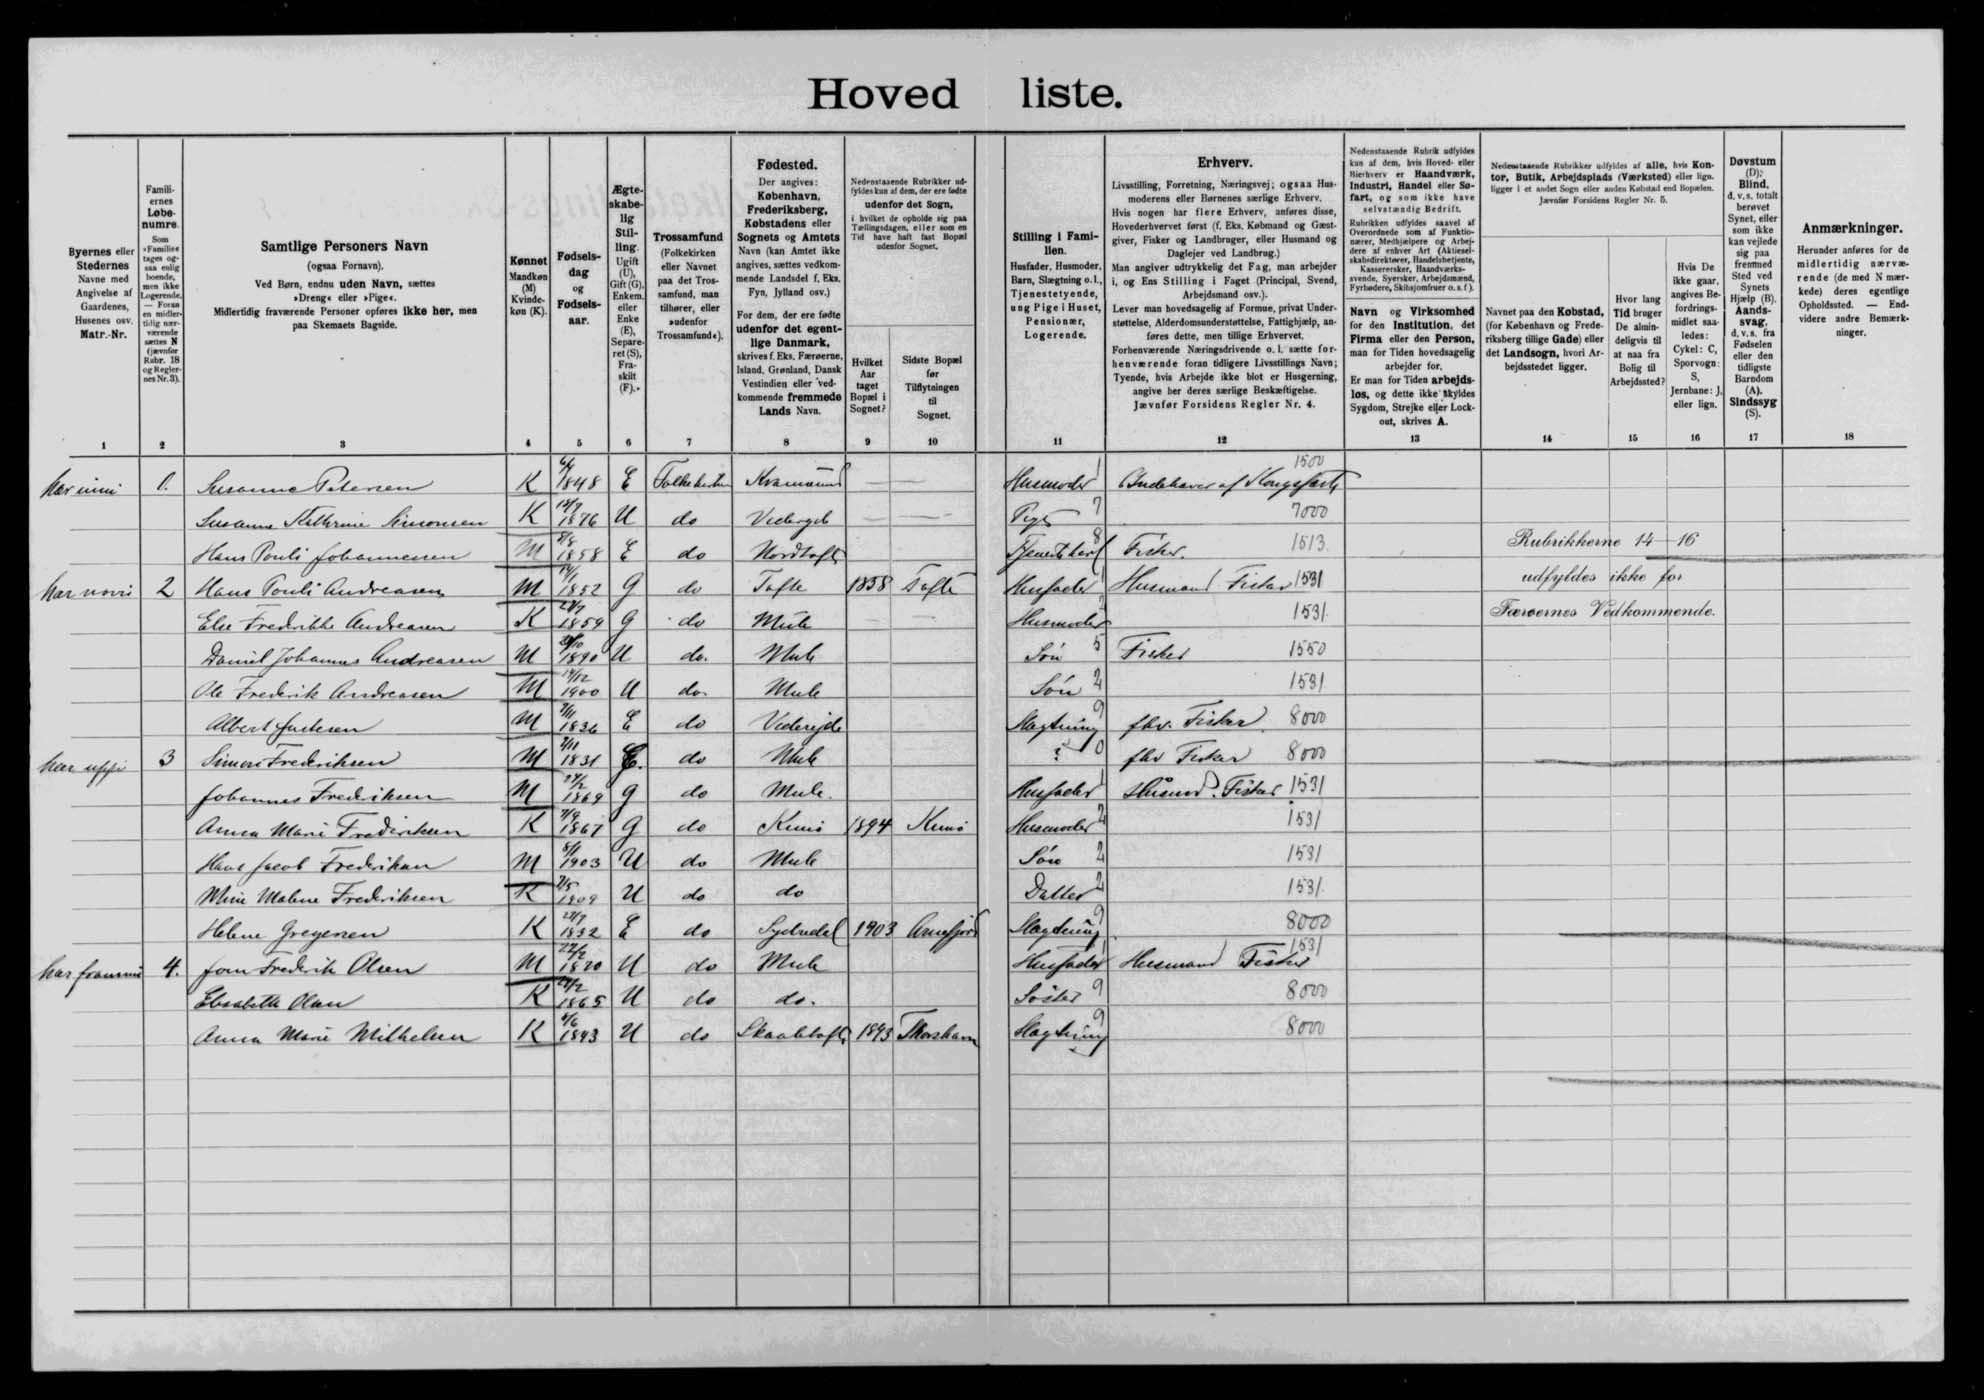 Hoved liste.
Byernes eller Stedernes Navne med Angivelse af Gaardenes, Husenes osv. Matr.-Nr.
Familiernes Løbenumre.
Som »Familie« tages ogsaa enlig boende, men ikke Logerende. — Foran en midlertidig nærværende sættes N (jævnfør Rubr. 18 og Regler-nes Nr. 3).
Samtlige Personers Navn
(ogsaa Fornavn).
Ved Børn, endnu uden Navn, sættes »Dreng« eller »Pige«.
Midlertidig fraværende Personer opføres ikke her, men paa Skemaets Bagside.
Kønnet
Mandkøn (M) Kvindekøn (K).
Fødselsdag og Fødselsaar.
Ægteskabelig Stilling.
Ugift (U), Gift (G), Enkem. eller Enke (E), Separeret (S), Fraskilt (F).
Trossamfund
(Folkekirken eller Navnet paa det Trossamfund, man tilhører, eller »udenfor Trossamfund«).
Fødested.
Der angives: København, Frederiksberg, Købstadens eller Sognets og Amtets Navn (kan Amtet ikke angives, sættes vedkommende Landsdel f. Eks. Fyn, Jylland osv.)
For dem, der ere fødte udenfor det egentlige Danmark, skrives f. Eks. Færøerne, Island, Grønland, Dansk Vestindien eller vedkommende fremmede Lands Navn.
Nedenstaaende Rubrikker udfyldes kun af dem, der ere fødte udenfor det Sogn, i hvilket de opholde sig paa Tællingsdagen, eller som en Tid have haft fast Bopæl udenfor Sognet.
Hvilket Aar taget Bopæl i Sognet?
Sidste Bopæl før Tilflytningen til Sognet.
Stilling i Familien.
Husfader, Husmoder, Barn, Slægtning o. l., Tjenestetyende, ung Pige i Huset, Pensionær, Logerende.
Erhverv.
Livsstilling, Forretning, Næringsvej; ogsaa Husmoderens eller Børnenes særlige Erhverv.
Hvis nogen har flere Erhverv, anføres disse, Hovederhvervet først (f. Eks. Købmand og Gæstgiver, Fisker og Landbruger, eller Husmand og Daglejer ved Landbrug.)
Man angiver udtrykkelig det Fag, man arbejder i, og Ens Stilling i Faget (Principal, Svend, Arbejdsmand osv.).
Lever man hovedsagelig af Formue, privat Understøttelse, Alderdomsunderstøttelse, Fattighjælp, anføres dette, men tillige Erhvervet.
Forhenværende Næringsdrivende o. l. sætte forhenværende foran tidligere Livsstillings Navn; Tyende, hvis Arbejde ikke blot er Husgerning, angive her deres særlige Beskæftigelse.
Jævnfør Forsidens Regler Nr. 4.
Nedenstaaende Rubrik udfyldes kun af dem, hvis Hoved- eller Bierhverv er Haandværk, Industri, Handel eller Søfart, og som ikke have selvstændig Bedrift.
Rubrikken udfyldes saavel af Overordnede som af Funktionærer, Medhjælpere og Arbejdere af enhver Art (Aktieselskabsdirektører, Handelsbetjente, Kassererskker, Haandværkssvende, Syersker, Arbejdsmænd, Fyrbødere, Skibsjomfruer o. s. f.).
Navn og Virksomhed for den Institution, det Firma eller den Person, man for Tiden hovedsagelig arbejder for.
Er man for Tiden arbejdsløs, og dette ikke skyldes Sygdom, Strejke eller Lockout, skrives A.
Nedenstaaende Rubrikker udfyldes af alle, hvis Kontor, Butik, Arbejdsplads (Værksted) eller lign. ligger i et andet Sogn eller anden Købstad end Bopælen.
Jævnfør Forsidens Regler Nr. 5.
Navnet paa den Købstad, (for København og Frederiksberg tillige Gade) eller det Landsogn, hvori Arbejdsstedet ligger.
Hvor lang Tid bruger De almindeligvis til at naa fra Bolig til Arbejdssted?
Hvis De ikke gaar, angives Befordringsmidlet saaledes: Cykel: C, Sporvogn: S, Jernbane: J, eller lign.
Døvstum (D); Blind, d. v. s. totalt berøvet Synet, eller som ikke kan vejlede sig paa fremmed Sted ved Synets Hjælp (B). Aandssvag, d. v. s. fra Fødselen eller den tidligste Barndom (A). Sindssyg (S).
Anmærkninger.
Herunder anføres for de midlertidig nærværende (de med N mærkede) deres egentlige Opholdssted. — Endvidere andre Bemærkninger.
1 2 3 4 5 6 7 8 9 10 11 12 13 14 15 16 17 18
har inni 1. Susanne Petersen K 1848 E Folkekirken Husmoder 1 Indehaver af Kongsfæste 1500
Susanne Kathrine Simonsen K 1876 U do Pige 7 7000
Hans Pouli Johannesen M 1858 E do Nordtofte 8 Fisker. 1513
Rubrikkerne 14—16
udfyldes ikke for
Færøernes Vedkommende.
har norri 2 Hans Pouli Andreasen M 1852 G do Tofte 1858 Tofte Husfader 1 Husmand Fisker 1531
Else Frederikke Andreasen K 1859 G do Mule Husmoder 2 1531
Daniel Johannes Andreasen M 1890 U do. Mule Søn 5 Fisker 1550
Ole Frederik Andreasen M 14/12 1900 U do. Mule Søn 2 1531
Albert Justesen M 1836 E do Videreide Slægtning 9 fhv. Fisker 8000
har uppi 3 Simon Frederiksen M 1831 E. do Mule 0 fhv Fisker 8000
Johannes Frederiksen M 1869 G do Mule. Husfader 1 Husmd. Fisker 1531
Anna Marie Frederiksen K 1867 G do Kunø 1894 Kunø Husmoder 2 1531
Hans Jacob Frederiksen M 1903 U do Mule Søn 2 1531
Malene Frederiksen K 1909 U do do Datter 2 1531
Helene Gregersen K 1832 E do Sydredal 1903 Arnefjord Slægtning 9 8000
har frammi 4. Frederik Olsen M 1870 U do Mule Husfader 1 Husmand Fisker 1531
Elisabeth Olsen K 1865 U do do. Søster 9 8000
Anna Marie Milhelsen K 1843 U do Skaaletofte 1893 Thorshavn Slægtning 9 8000